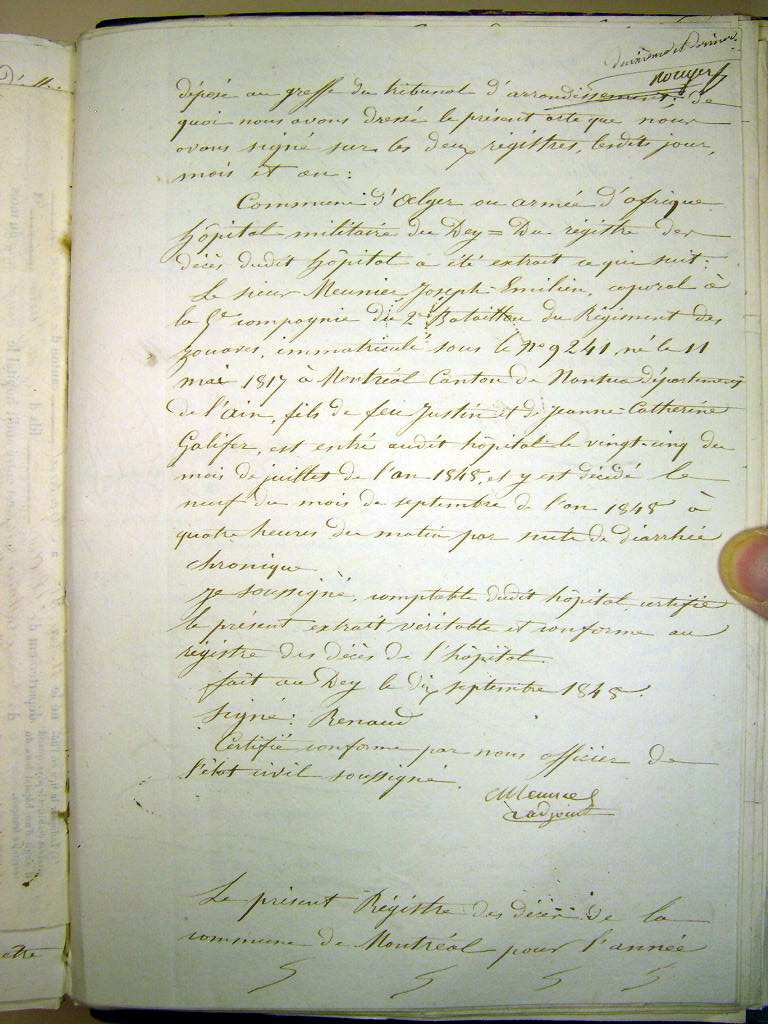 douzième et dernier
Rouyer
déposé au greffe du tribunal d'arrondissement: De
quoi nous avons dressé le présent acte que nous
avons signé sur les deux régistres, lesdits jour,
mois et an:
Commune d'Alger ou armée d'afrique
hôpital militaire du Dey = Du régistre des
décès dudit hôpital a été extrait ce qui suit:
Le sieur Meunier Joseph-Emilien, caporal à
la 5e compagnie du 2e Bataillon du Régiment des
zouaves, immatriculé sous le No 9241 né le 11
mai 1817 à Montréal Canton de Nantua département
de l'ain, fils de feu Justin et de Jeanne-Catherine
Galifer, est entré audit hôpital le vingt-cinq du
mois de juillet de l'an 1845, et y est décédé le
neuf du mois de septembre de l'an 1845 à
quatre heures du matin par suite de diarrhée
chronique
Je soussigné, comptable dudit hôpital certifie
le présent extrait véritable et conforme au
régistre des décès de l'hôpital.
fait au Dey le dix septembre 1845.
Signé: Renaud
Certifié conforme par nous officier de
l'état civil soussigné.
Meunier
adjoint
Le présent Régistre des décès de la
commune de Montréal pour l'année